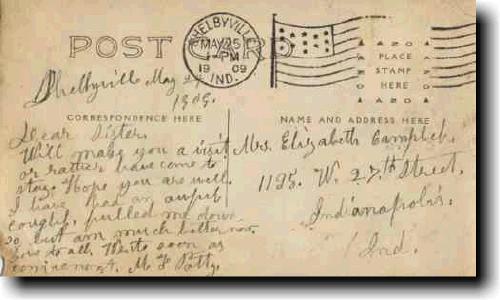 POST CARD
SHELBYVILLE
MAY 25
-PM
1909
IND.
AZO
PLACE
STAMP
HERE
AZO
Shelbyvill May 24
1909.
CORRESPONDENCE HERE
NAME AND ADDRESS HERE
Dear Sister.
Will make you a visit
or rather have come to
stay. Hope you are well.
I have had an awful
cough, pulled me down
so, but am much better now
love to all. Write soon as
M. F. Patty.
Mrs. Elizabeth Campbell.
1125. W. 27th Street,
Indianapolis.
Ind.